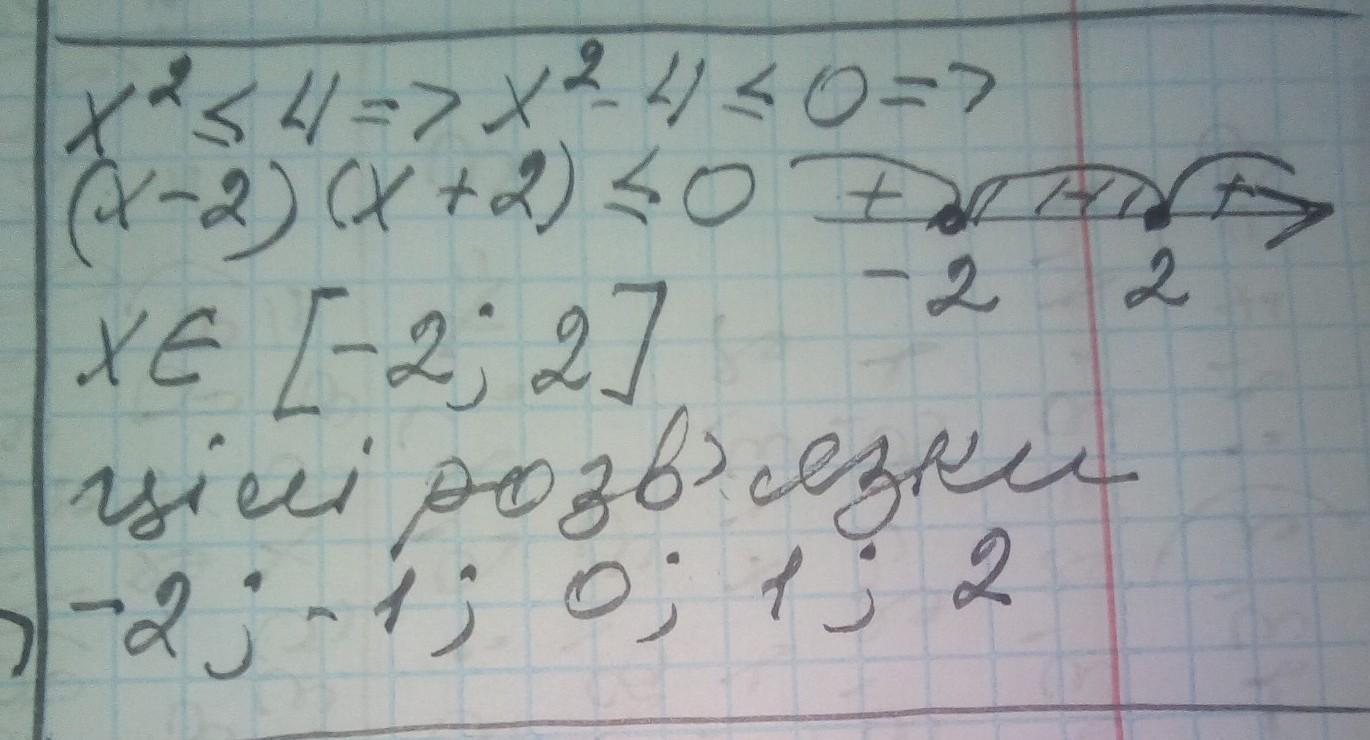 x² ≤ 4 => x² - 4 ≤ 0 =>
(x-2)(x+2) ≤ 0 + - +
-2 2
x ∈ [-2; 2]
цілі розв'язки
-2; -1; 0; 1; 2